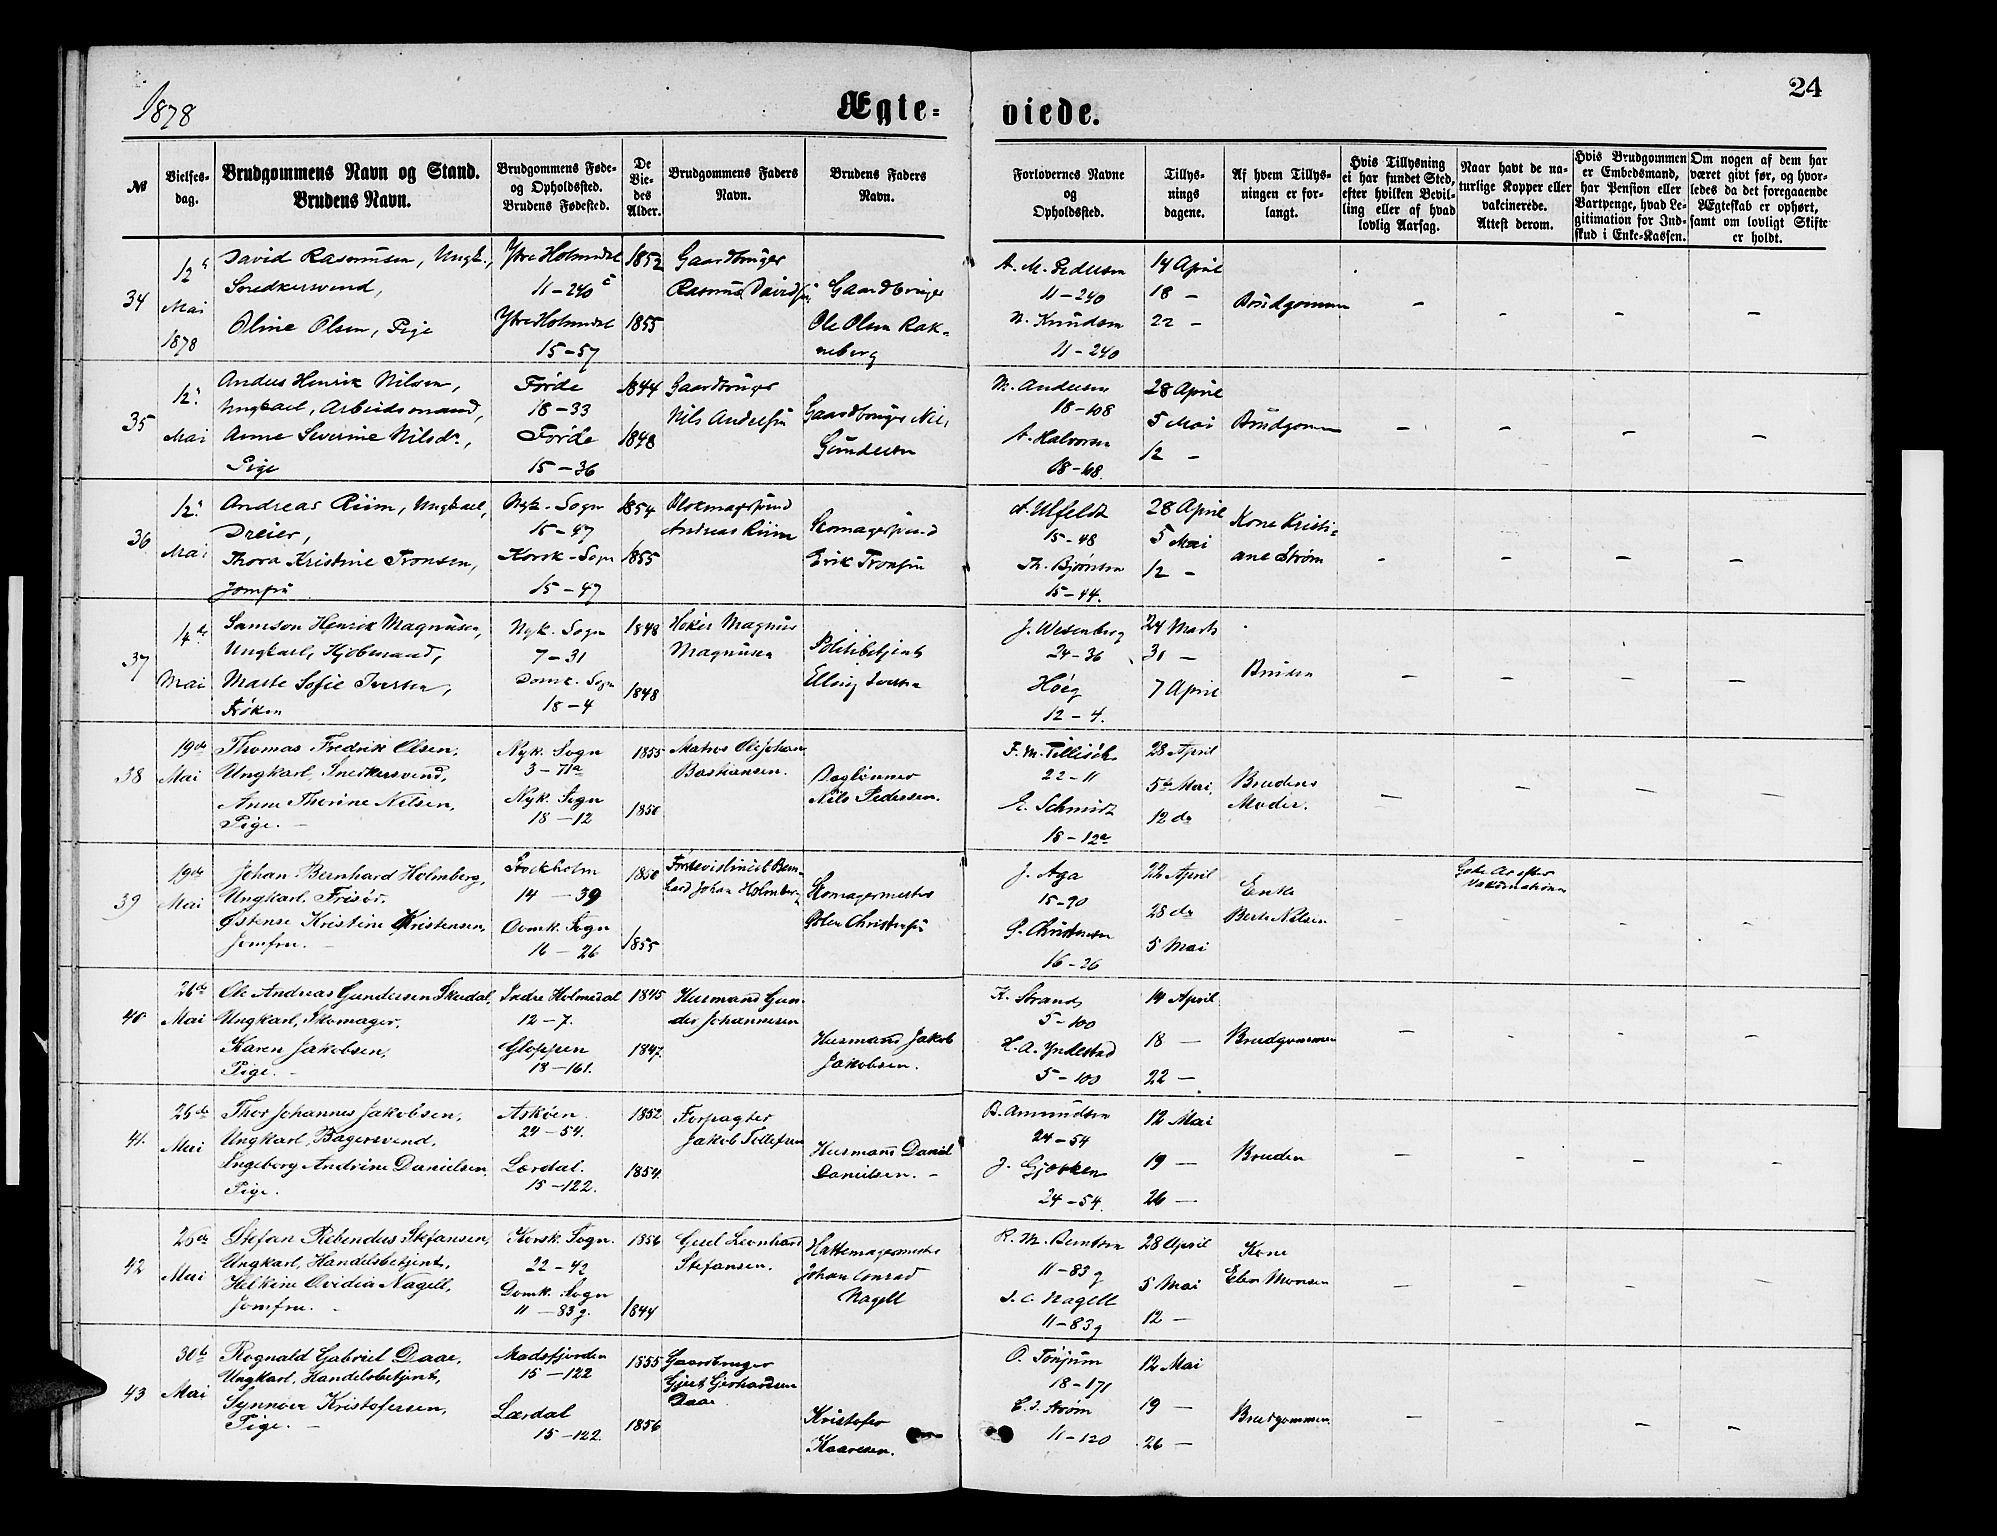 1878
Ægte-
viede.
24
№
Vielses-
dag.
Brudgommens Navn og Stand.
Brudens Navn.
Brudgommens Føde-
og Opholdssted.
Brudens Fødested.
De
Vie-
des
Alder.
Brudgommens Faders
Navn.
Brudens Faders
Navn.
Forlovernes Navne
og
Opholdssted.
Tillys-
nings
dagene.
Af hvem Tillys-
ningen er for-
langt.
Hvis Tillysning
ei har fundet Sted,
efter hvilken Bevil-
ling eller af hvad
lovlig Aarsag.
Naar havt de na-
turlige Kopper eller
vakcinerede.
Attest derom.
Hvis Brudgommen
er Embedsmand,
har Pension eller
Vartpenge, hvad Le-
gitimation for Ind-
skud i Enke-Kassen.
Om nogen af dem har
været givt før, og hvor-
ledes da det foregaaende
Ægteskab er ophørt,
samt om lovligt Skifte
er holdt.
34
12
Mai
1878
David Rasmusen, Ungk.,
Snedkersvend,
Oline Olsen, Pige
Ytre Holmedal
11-240
Ytre Holmedal
15-57
1852
1855
Gaardbruger
Rasmus Davidsen
Gaardbruger
Ole Olsen Rak-
neberg
A. M. Pedersen
11-240
N. Knudsen
11-240
14 April
18 -
22 -
Brudgommen
35
12
Mai
Anders Henrik Nilsen,
Ungkarl, Arbeidsmand,
Anne Severine Nilsdr.,
Pige
Førde
18-33
Førde
15-36
1844
1848
Gaardbruger
Nils Andersen
Gaardbruger Nils
Gundersen
M. Andersen
18-108
A. Halvorsen
18-68
28 April
5 Mai
12 -
Brudgommen
36
12
Mai
Andreas Riim, Ungkarl,
Dreier,
Thora Kristine Tronsen,
Jomfru
Nyk. Sogn
15-47
Korsk. Sogn
15-47
1854
1855
Blokmagersvend
Andreas Riim
Skomagersvend
Erik Tronsen
A. Ulfeldt
15-48
Th. Bjørnsen
15-44.
28 April
5 Mai
12 -
Kone Kristi-
ane Strøm
37
14de
Mai
Samson Henrik Magnusen,
Ungkarl, Kjøbmand,
Marte Sofie Iversen,
Frøken
Nyk. Sogn
7-31
Domk. Sogn
18-4
1848
1848
Høker Magnus
Magnusen
Politibetjent
Elling Iversen
J. Wesenberg
24-36
Høeg
12-4.
24 Marts
31 -
7 April
Bruden
38
19de
Mai
Thomas Fredrik Olsen,
Ungkarl, Snedkersvend,
Anne Therine Nilsen,
Pige. -
Nyk. Sogn
3-71a
Nyk. Sogn
18-12
1855
1850
Matros Ole Johan
Bastiansen.
Daglønner
Nils Pedersen.
F. M. Tillisch
22-11
E. Schmidt
18-12a
28 April
5te Mai,
12 do
Brudens
Moder.
39
19de
Mai
Johan Bernhard Holmberg,
Ungkarl, Frisør,
Østense Kristine Kristensen,
Jomfru. -
Stockholm
14-39
Domk. Sogn
16-26
1850
1855
hard Johan Holmberg
Skomagermester
J. Aga
15-90
16-26
22 April
28 do
5 Mai
Enke
Berte Nilsen
40
26de
Mai
Ole Andreas Gundersen Skudal,
Ungkarl, Skomager,
Karen Jakobsen,
Pige. -
Indre Holmedal
12-7.
Gloppen
13-161.
1845
1847.
Husmand Gun-
der Johannesen
Husmand Jakob
Jakobsen.
K. Strand
5-100
H. A. Yndestad
5-100
14 April
18 -
22 -
Brudgommen
41.
26de
Mai
Thor Johannes Jakobsen,
Ungkarl, Bagersvend,
Ingeborg Andrine Danielsen,
Pige.
Askøen.
24-54.
Lærdal.
15-122.
1852
1854.
Forpagter
Jakob Tollefsen
Husmand Daniel
Danielsen. -
B. Amundsen
24-54
J. Gjørken
24-54.
12 Mai
19 -
26 -
Bruden
42
26de
Mai
Stefan Rebendus Stefansen,
Ungkarl, Handelsbetjent,
Helkine Ovidia Nagell,
Jomfru. -
Korsk. Sogn.
22-42
Domk. Sogn
11-83g.
1856
1844
Giert Leonhard
Stefansen.
Hattemagermester
Johan Conrad
Nagell
R. M. Berntsen
11-83g
J. C. Nagell
11-83g
28 April
5 Mai
12 -
Kone
Elen Monsen
43
30te
Mai
Rognald Gabriel Daae,
Ungkarl, Handelsbetjent,
Synnøve Kristofersen,
Pige. -
Madsfjorden
15-122
Lærdal
15-122.
1855
1856
Gaardbruger
Gjert Gerhardsen
Daae
Kristofer
Kaaresen.
O. Tønjum
18-171
C. J. Strøm
11-120
12 Mai
19 -
26 -
Brudgommen